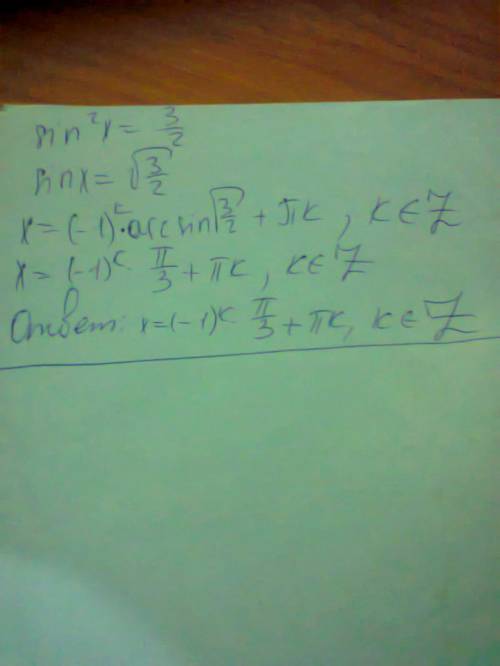 sin²x = 3/2
sinx = √(3/2)
x = (-1)^k · arcsin √(3/2) + πk, k ∈ Z
x = (-1)^k · π/3 + πk, k ∈ Z
Ответ: x = (-1)^k · π/3 + πk, k ∈ Z